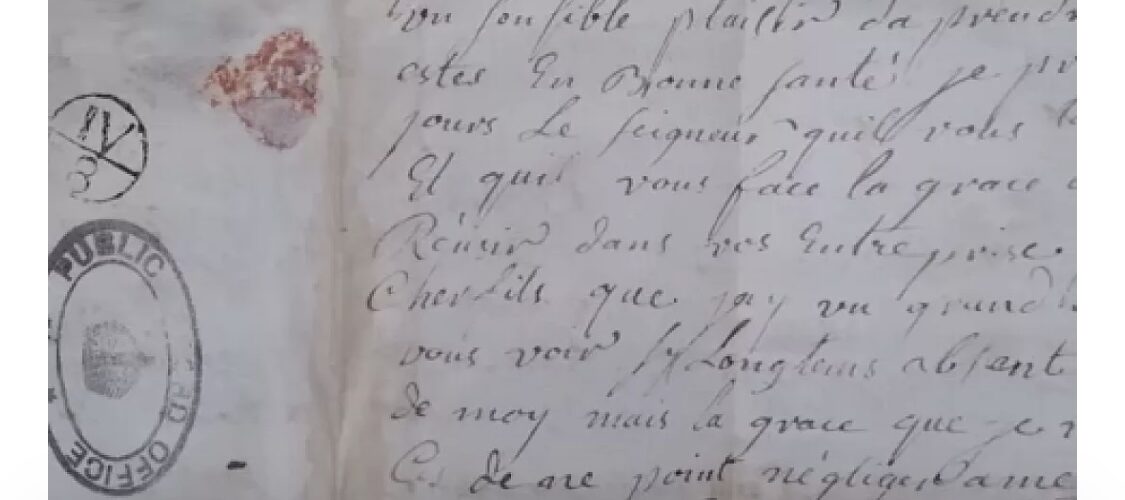 IV
8
PUBLIC
RD OFFICE
plaisir da prend
estes En Bonne santé je
jours Le seigneur quil vous
Et quil vous face la grace
Réusir dans vos Entreprise
Cher fils que jay un grand
vous voir sy Longtems absent
de moy mais la grace que je
de ne point négliger